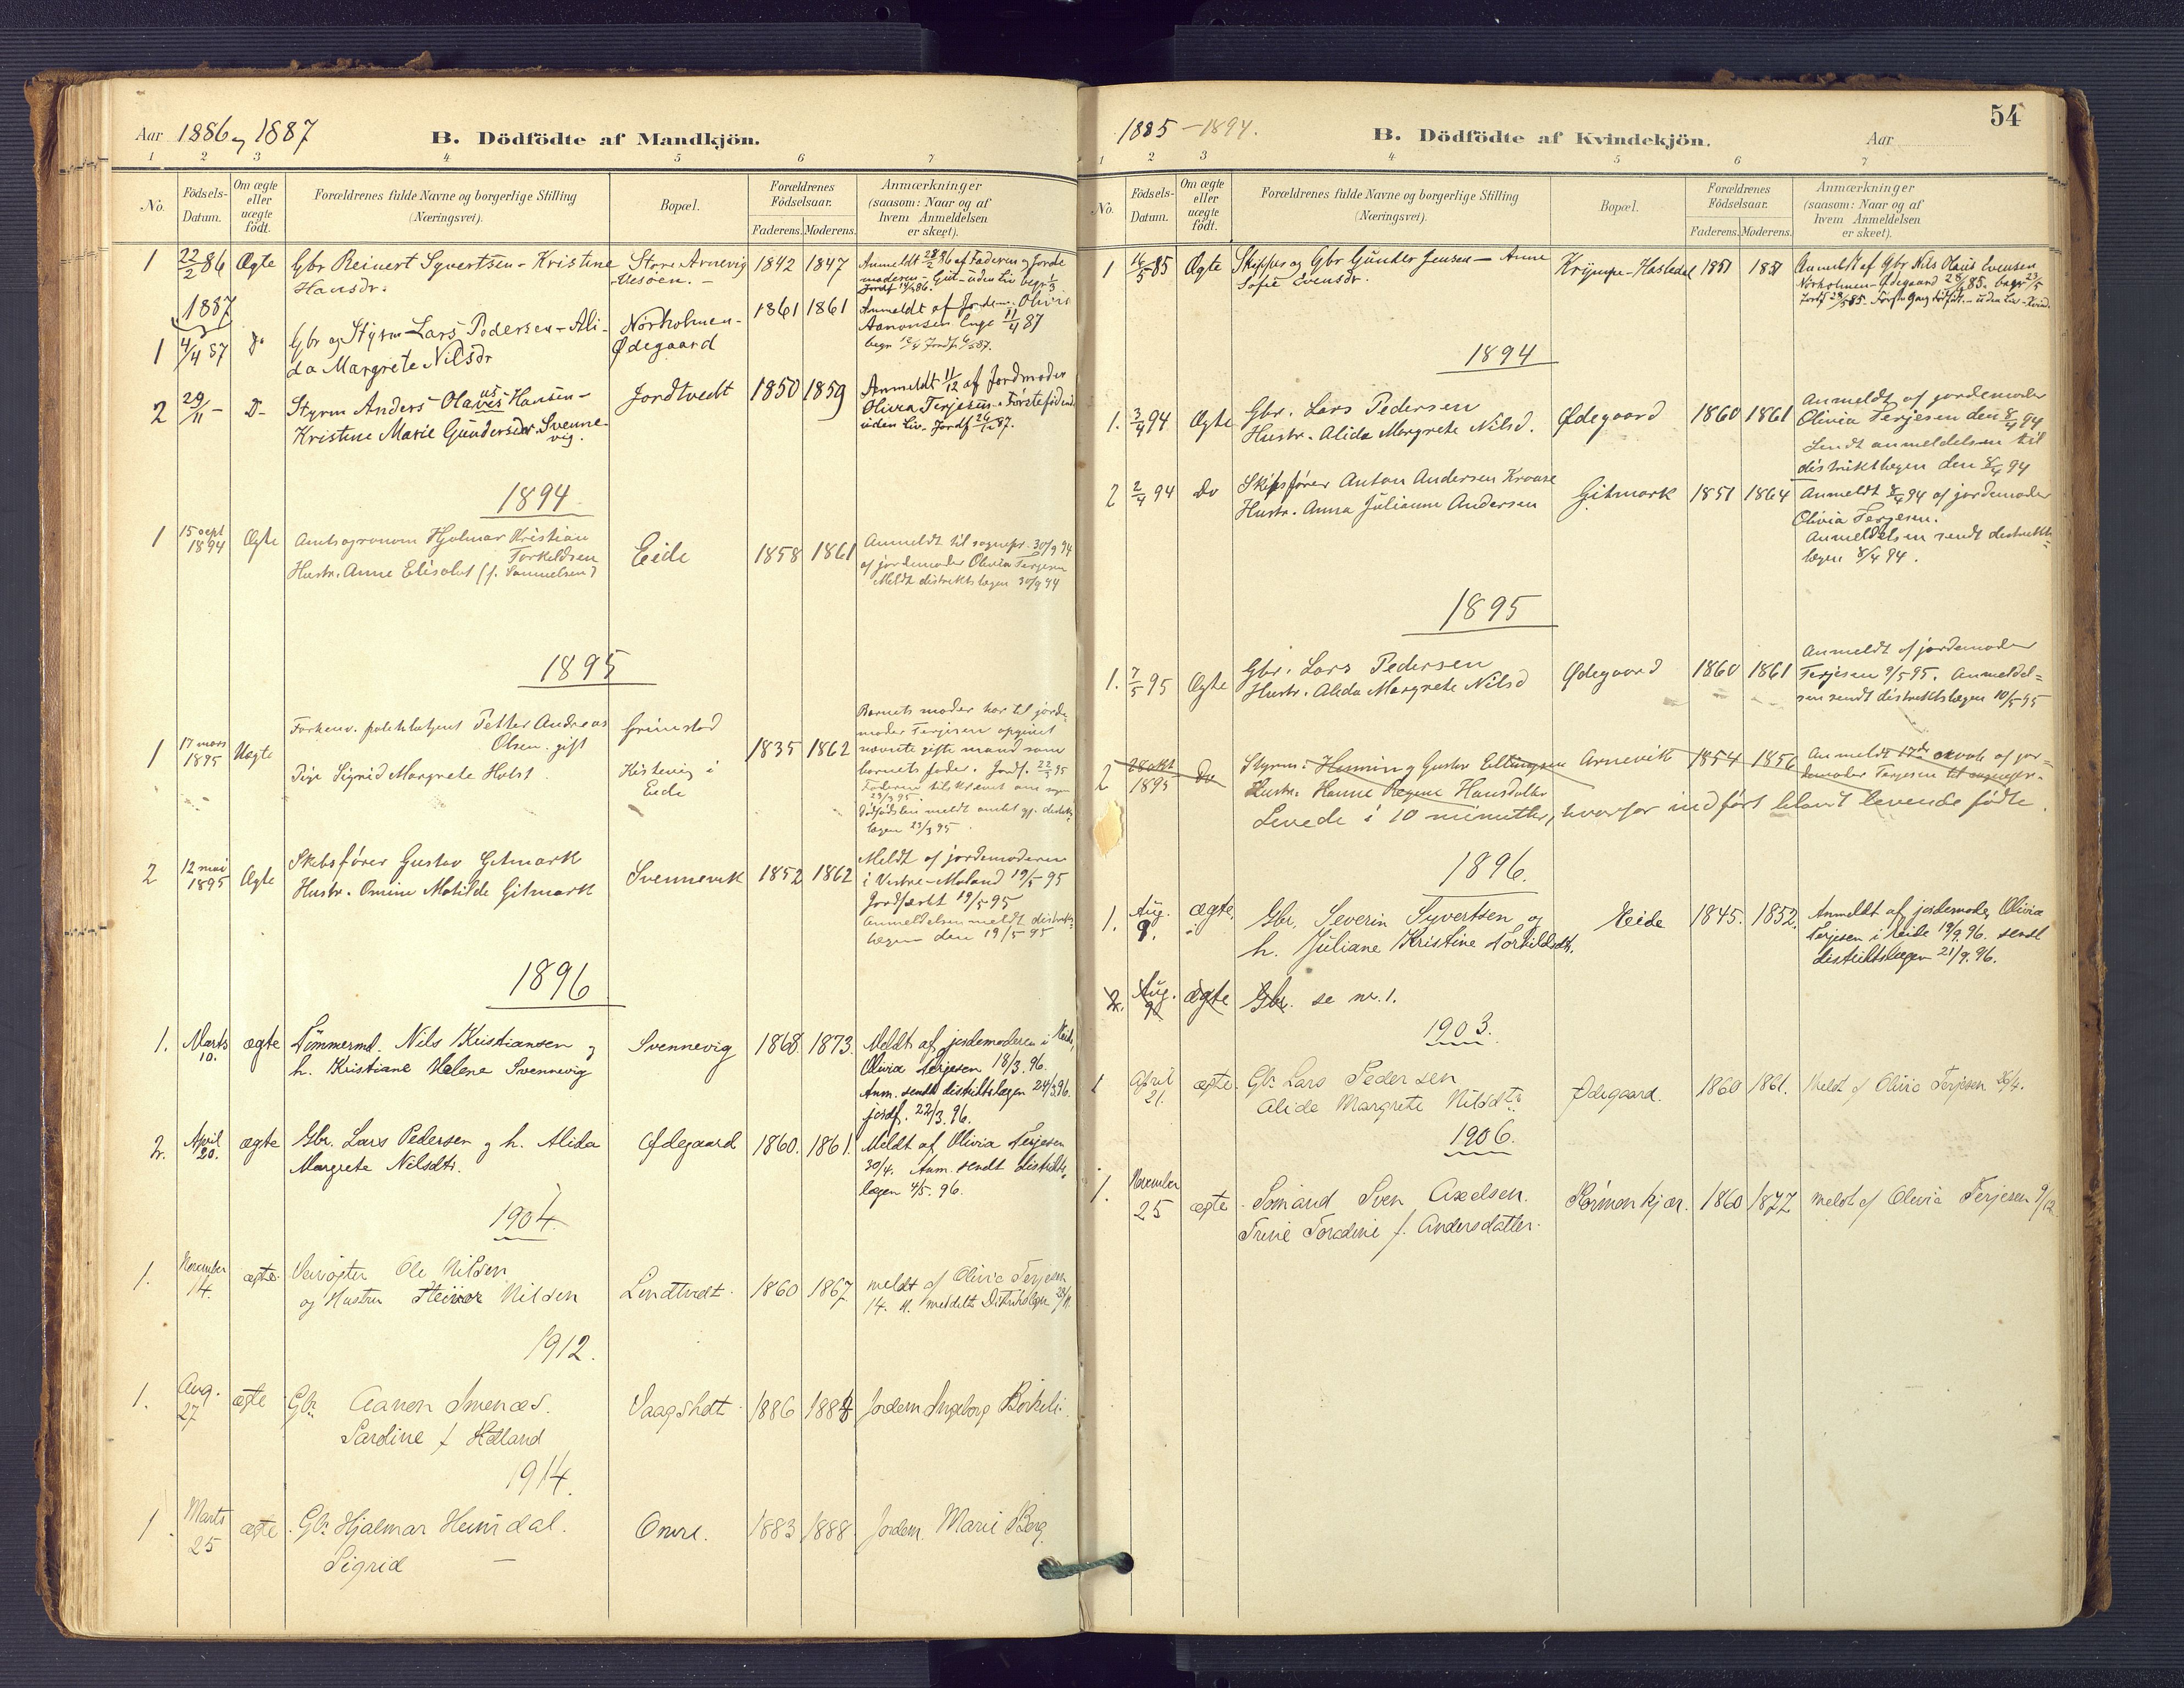 Aar 1886 og 1887
B. Dödfödte af Mandkjön.
1 2 3 4 5 6 7
No.
Födsels-Datum.
Om ægte eller uægte födt.
Forældrenes fulde Navne og borgerlige Stilling
(Næringsvei).
Bopæl.
Forældrenes Födselsaar.
Faderens. Moderens.
Anmærkninger
(saasom: Naar og af
hvem Anmeldelsen
er skeet).
1 22/2 86 Ægte Gbr Reinert Syvertsen - Kristine Hansdr. Store Arnevig 1842 1847 Anmeldt 28/2 86 af Faderen
1887
1 4/4 87 Do Gbr og Styrm Lars Pedersen - Alida Margrete Nilsdr Nörholmen - Ødegaard 1861 1861 Anmeldt af Jordem. Olivia Aanonsen Enge 11/4 87
2 29/11 - D- Styrm Anders Olavus Hansen - Kristine Marie Gundersdr. Svennevig. Jordtvedt 1850 1859 Anmeldt 11/12 af Jordmoder Olivia Terjesen. Förstefödende uden Liv. Jordf 26/12 87.
1894
1 15 sept 1894 Ægte Amtsagronom Hjalmar Kristian Torkeldsen
Hustr. Anne Elisabet (f. Samuelsen) Eide 1858 1861 Anmeldt til sognepr. 30/9 94
af jordemoder Olivia Terjesen
Meldt distriktslægen 30/9 94
1895
1 17 mars 1895 Uægte Forhenv. politibetjent Petter Andreas Olsen. gift
Pige Sigrid Margrete Holst. Grimstad
Kistevig i Eide 1835 1862 Barnets moder har til jorde-
moder Terjesen opgivet
nævnte gifte mand som
barnets fader. Jordf. 22/3 95
lægen 23/3 95.
2 12 mai 1895 Ægte Skibsfører Gustav Gitmark
Hustr. Omine Matilde Gitmark Svennevik 1852 1862 Meldt af jordemoderen
i Vestre-Moland 19/5 95
Jordfæstet 19/5 95
Anmeldelsen meldt distrikts-
lægen den 19/5 95
1896
1. Marts 10. ægte Tømmermd. Nils Kristiansen og
h. Kristiane Helene Svennevig Svennevig 1868. 1873. Meldt af jordemoderen i Eide,
Olivia Terjesen 18/3. 96.
Anm. sendt distriktslægen 24/3.96.
jordf. 22/3. 96.
2. April 20. ægte Gbr. Lars Pedersen og h. Alida
Margrete Nilsdtr. Ødegaard 1860. 1861. Meldt af Olivia Terjesen
30/4. Anm. sendt distrikts-
lægen 4/5. 96.
1904.
1. November 14. ægte. Ole Nilsen
og Hustru Nilsen Lendtvedt. 1860 1867 meldt af Olivia Terjesen
14. 11. meddelt Distriktslægen 23/11.
1912.
1. Aug. 27 ægte Gbr. Aanon Smenæs.
Sardine f. Hølland Vaagsholt 1886 1884 Jordem Ingeborg Birkeli.
1914.
1. Marts 25 ægte. Gbr Hjalmar Heimdal.
Sigrid — Omre. 1883 1888. Jordem. Marie Berg.
54
1885 - 1894.
B. Dödfödte af Kvindekjön.
Aar
1 2 3 4 5 6 7
No.
Födsels-Datum.
Om ægte eller uægte födt.
Forældrenes fulde Navne og borgerlige Stilling
(Næringsvei).
Bopæl.
Forældrenes Födselsaar.
Faderens. Moderens.
Anmærkninger
(saasom: Naar og af
hvem Anmeldelsen
er skeet).
1 16/5 85 Ægte Skipper og Gbr Gunder Jensen - Anne
Sofie Evensdr. Krympe - Hasledal 1851 1851 Anmeldt af Gbr Nils Olaus Evensen
Nörholmen - Ødegaard
1894
1. 3/4 94 Ægte Gbr. Lars Pedersen
Hustr. Alida Margrete Nilsd. Ødegaard 1860 1861 Anmeldt af jordemoder
Olivia Terjesen den 8/4 94
Sendt anmeldelsen til
distriktslægen den 8/4 94
2 2/4 94 Do Skibsfører Anton Andersen Kroase
Hustr. Anna Julianne Andersen Gitmark 1851 1864 Anmeldt 8/4 94 af jordemoder
Olivia Terjesen.
Anmeldelsen sendt distrikts-
lægen 8/4 94.
1895
1. 7/5 95 Ægte Gbr. Lars Pedersen
Hustr. Alida Margrete Nilsd Ødegaard 1860 1861 Anmeldt af jordemoder
Terjesen 9/5 95. Anmeldel-
sen sendt distriktslægen 10/5 95
2 28 okt 1895 Do Styrm. Henning Gustav Ellingsen
Hustr. Hanne Regine Hansdatter Arnevik 1854 1856 Anmeldt 17de af jor-
demoder Terjesen til sognepr.
Levede i 10 minutter, hvorfor indført blandt levende fødte.
1896.
1. Aug. 9. ægte. Gbr. Severin Syvertsen og
h. Juliane Kristine Torkildsdtr. Eide 1845. 1852. Anmeldt af jordemoder Olivia
Terjesen i Eide 19/9.96. sendt
distriktslægen 21/9.96.
2. Aug. 9 ægte Gbr. se nr. 1.
1903.
1 April 21. ægte. Gbr Lars Pedersen
Alide Margrete Nilsdtr. Ødegaard. 1860 1861. Meldt af Olivia Terjesen 26/4.
1906.
1. November 25 ægte Sømand Sven Axelsen.
Trine Tordine f. Andersdatter. Kormonkjær. 1860 1877 meldt af Olivia Terjesen 9/12